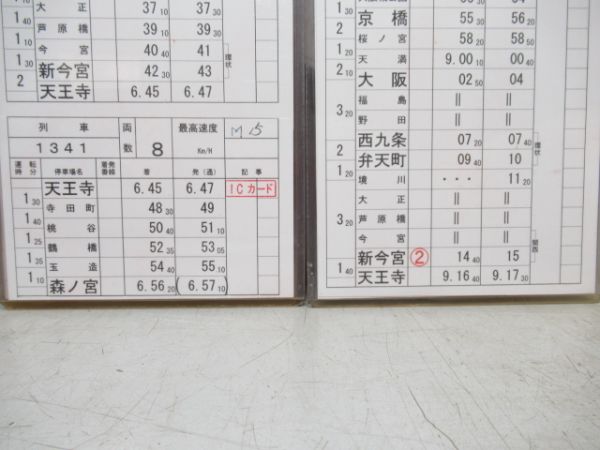 大正 37 10 37 30
1 30 芦原橋 39 10 39 30
今宮 40 40 41 環状
1 30 新今宮 42 30 43
2 天王寺 6.45 6.47
列車 両数 最高速度 M 15
1341 8 Km/H
運転時分 停車場名 着発番線 着 発(通) 記事
天王寺 6.45 6.47 ICカード
1 30 寺田町 48 30 49
1 40 桃谷 50 40 51 10
1 25 鶴橋 52 35 53 05
1 25 玉造 54 40 55 10
1 10 森ノ宮 6.56 20 (6.57 10)
1 30 京橋 55 30 56 20
2 桜ノ宮 58 20 58 50
1 10 天満 9.00 10 00 40
2 10 大阪 02 50 04
福島 || ||
3 20 野田 || ||
西九条 07 20 07 40 環状
2 弁天町 09 40 10
1 20 境川 ・・・ 11 20
大正 || ||
3 20 芦原橋 || ||
今宮 || || 関西
新今宮 ② 14 40 15
1 40 天王寺 9.16 40 9.17 30